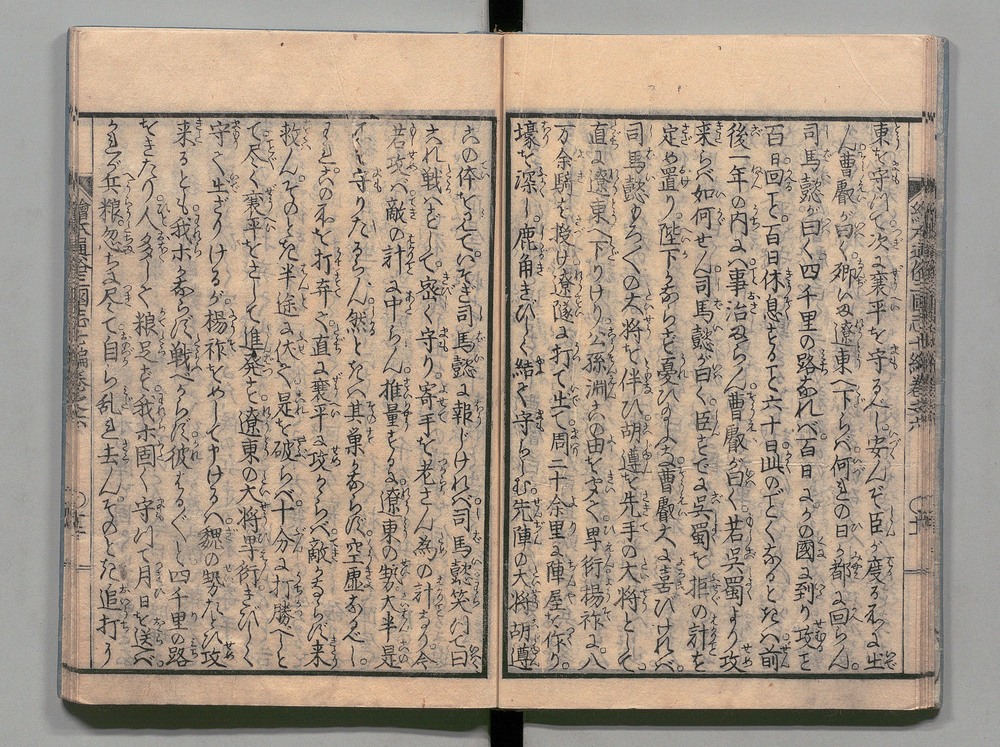 東を守りて次に襄平を守るべし安んぞ臣が度る処に出
ん曹叡が曰く卿は遼東へ下らバ何れの日か都に回らん
司馬懿が曰く四千里の路なれバ百日にかの國に到り攻を
百日回て百日休息するに六十日此のごとくなるときハ前
後一年の内に事治ならん曹叡が曰く若呉蜀より攻
来らバ如何せん司馬懿が曰く臣すでに呉蜀を拒の計を
定め置り陛下かならず憂ひ給ふ曹叡大に喜びけれバ
司馬懿もろ〳〵の大将を伴ひ胡遵を先手の大将として
直に遼東へ下りけり公孫淵この由をきく卑衍楊祚に八
万余騎を授け遼隧に打て出て周二十余里に陣屋を作り
壕を深し鹿角きびしく結て守らしむ先陣の大将胡遵
この体を見ていそぎ司馬懿に報じけれバ司馬懿笑つて曰
これ戦ハずして密く守り寄手を老さん為の計なり今
若攻バ敵の計に中らん推量するに遼東の勢大半是
を守りたるらん然るときハ其巣かならず空虚なるべし
われこの処を打弃て直に襄平に攻かゝらバ敵かならず来
救んそのとき半途に伏て是を破らバ十分に打勝べしと
て尽く襄平をさして進発す遼東の大将卑衍きびしく
守て出ざりけるが楊祚をめして申けるハ魏の勢たとひ攻
来るとも我ホかならず戦べからず彼はる〴〵と四千里の路
をきたり人多くして粮足ず我ホ固く守つて月日を送バ
かれが兵粮忽ちに尽て自ら乱れ去ん。そのとき追打に